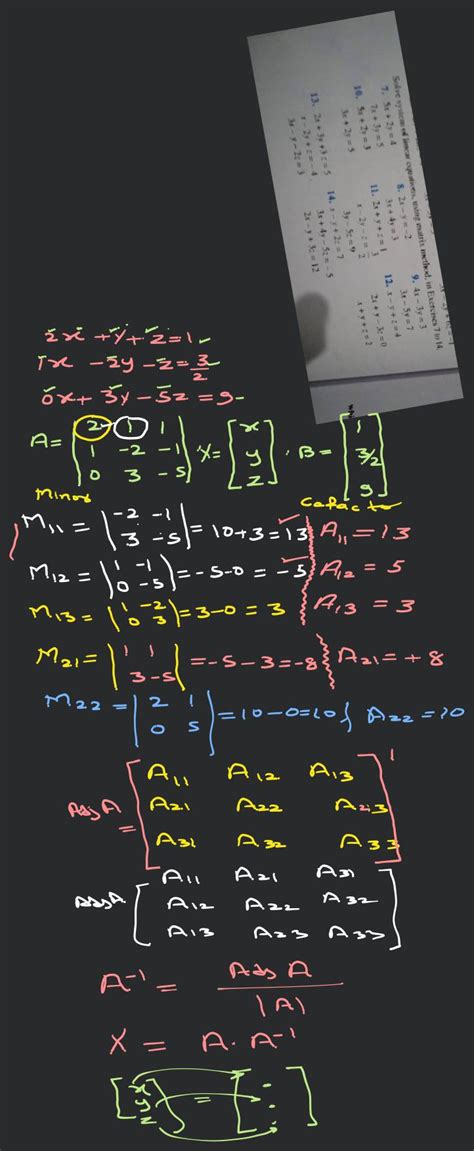 Solve system of linear equations, using matrix method, in Exercises 7 to 14.
7. 5x + 2y = 4
7x + 3y = 5
8. 2x – y = –2
3x + 4y = 3
9. 4x – 3y = 3
3x – 5y = 7
10. 5x + 2y = 3
3x + 2y = 5
11. 2x + y + z = 1
x – 2y – z = 3/2
3y – 5z = 9
12. x – y + z = 4
2x + y – 3z = 0
x + y + z = 2
13. 2x + 3y + 3z = 5
x – 2y + z = – 4
3x – y – 2z = 3
14. x – y + 2z = 7
3x + 4y – 5z = – 5
2x – y + 3z = 12
2x + y + z = 1
1x - 2y - z = 3/2
0x + 3y - 5z = 9
A = [2 1 1
1 -2 -1
0 3 -5] X = [x
y
z], B = [1
3/2
9]
Minor
Cofactor
M11 = |-2 -1
3 -5| = 10+3 = 13 A11 = 13
M12 = |1 -1
0 -5| = -5-0 = -5 A12 = 5
M13 = |1 -2
0 3| = 3-0 = 3 A13 = 3
M21 = |1 1
3 -5| = -5-3 = -8 A21 = +8
M22 = |2 1
0 5| = 10-0=10 A22 = 10
Adj A = [A11 A12 A13
A21 A22 A23
A31 A32 A33]'
Adj A [A11 A21 A31
A12 A22 A32
A13 A23 A33]
A-1 = Adj A
|A|
X = A. A-1
[x
y
z] = [. . .]